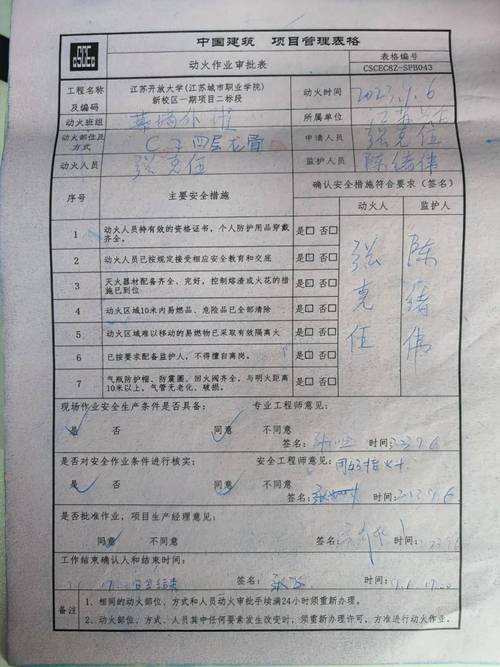 CSCEC
中国建筑 项目管理表格
动火作业审批表
表格编号
CSCEC8Z-SPB043
工程名称及编码
江苏开放大学(江苏城市职业学院)
新校区一期项目二标段
动火时间
2023.9.6
动火班组
幕墙外
所属单位
江苏
动火部位及方式
四层龙骨
申请人员
张克伍
动火人员
张克伍
监护人员
陈绪伟
序号
主要安全措施
确认安全措施符合要求(签名)
动火人
监护人
1 动火人员持有效的资格证书,个人防护用品穿戴齐全。 是□ 否□
2 动火人员已按规定接受相应安全教育和交底 是□ 否□
3 灭火器材配备齐全、完好,控制熔渣或火花的措施已到位 是□ 否□
4 动火区域10米内易燃品、危险品已全部清除 是□ 否□
5 动火区域难以移动的易燃物已采取有效隔离火 是□ 否□
6 已按要求配备监护人,不得擅自离岗。 是□ 否□
7 气瓶防护帽、防震圈、回火阀齐全,与明火距离10米以上,气管无老化、破损。 是□ 否□
张克伍
陈绪伟
现场作业安全生产条件是否具备: 专业工程师意见:
是 否 同意 不同意
签名: 时间:
是否对安全作业条件进行核实: 安全工程师意见:
是 否 同意 不同意
签名: 时间:
是否批准作业,项目生产经理意见:
同意 不同意
签名: 时间:
工作结束确认人和结束时间:
签名: 时间:
备注
1、相同的动火部位、方式和人员动火审批手续满24小时须重新办理。
2、动火部位、方式、人员其中任何要素发生改变时,须重新办理许可,方准进行动火作业。